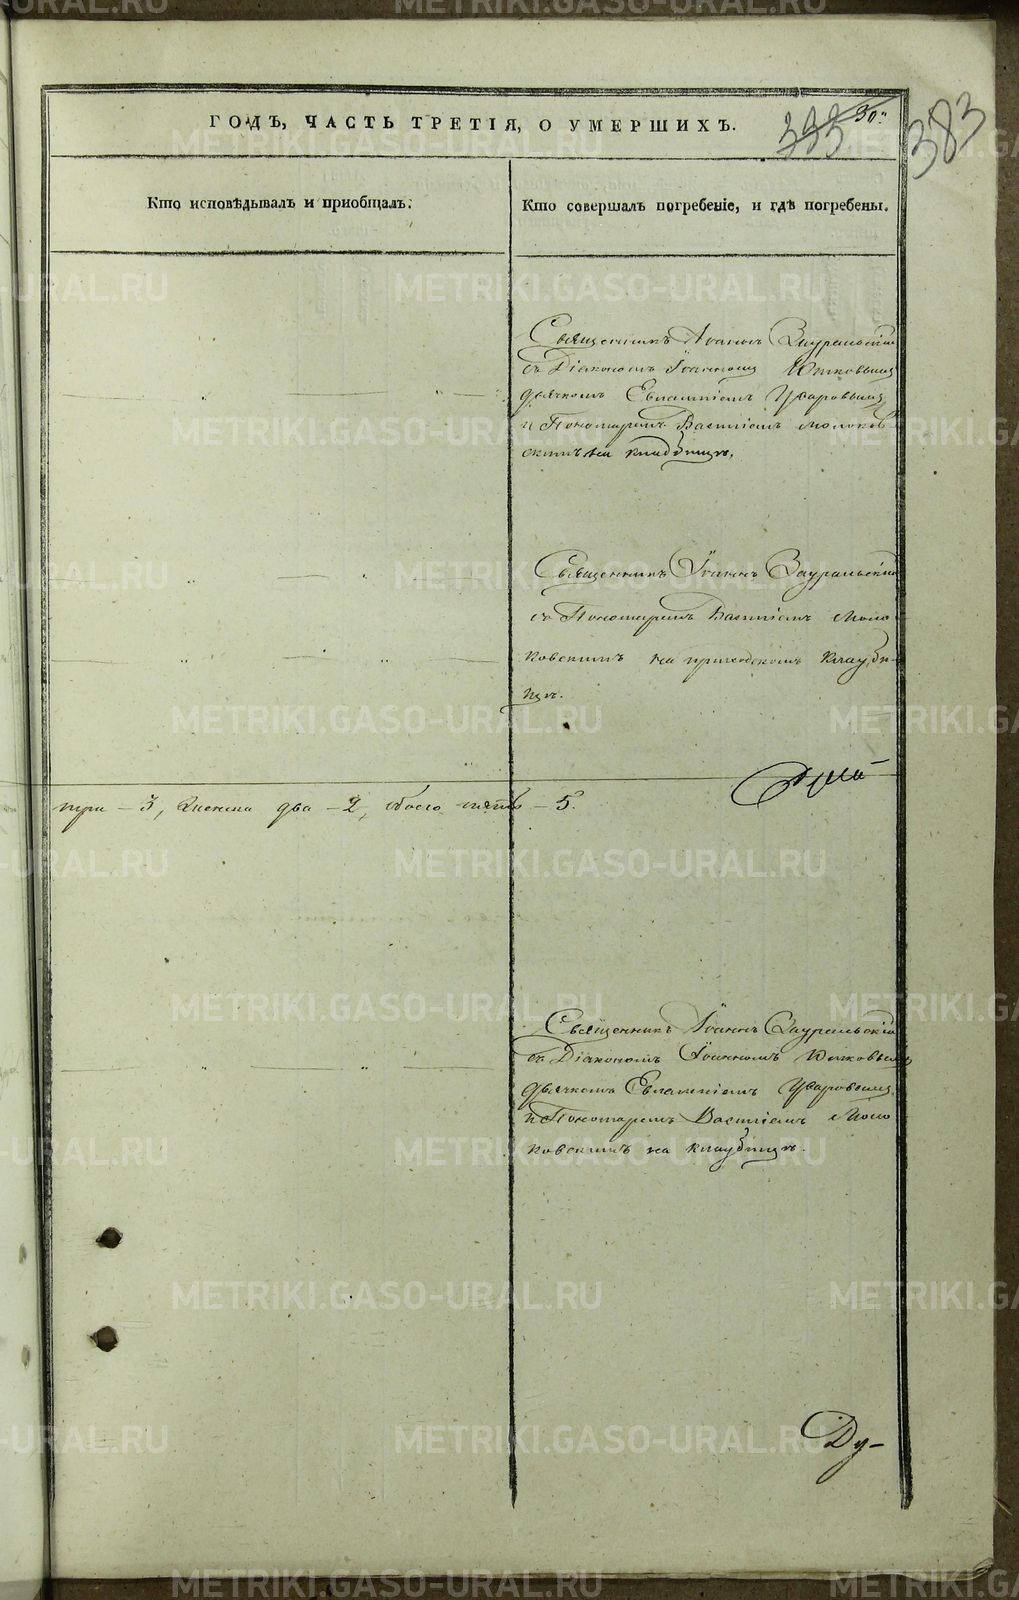 ГОДЪ, ЧАСТЬ ТРЕТІЯ, О УМЕРШИХЪ.
333 383
Кто исповѣдывалъ и приобщалъ.
Кто совершалъ погребеніе, и гдѣ погребены.
Священникъ Іоаннъ Зауральскій
съ Діакономъ Іоанномъ
дьячкомъ Евлампіемъ Уваровымъ
и Пономаремъ Василіемъ Молоков-
скимъ на кладбищѣ.
Священникъ Іоаннъ Зауральскій
съ Пономаремъ Василіемъ Моло
ковскимъ на приходскомъ кладби-
щѣ.
три - 3, женска два - 2, обоего пять - 5.
Священникъ Іоаннъ Зауральскій
съ Діакономъ Іоанномъ
дьячкомъ Евлампіемъ Уваровымъ
и Пономаремъ Василіемъ Моло
ковскимъ на кладбищѣ.
Ду-
METRIKI.GASO-URAL.RU